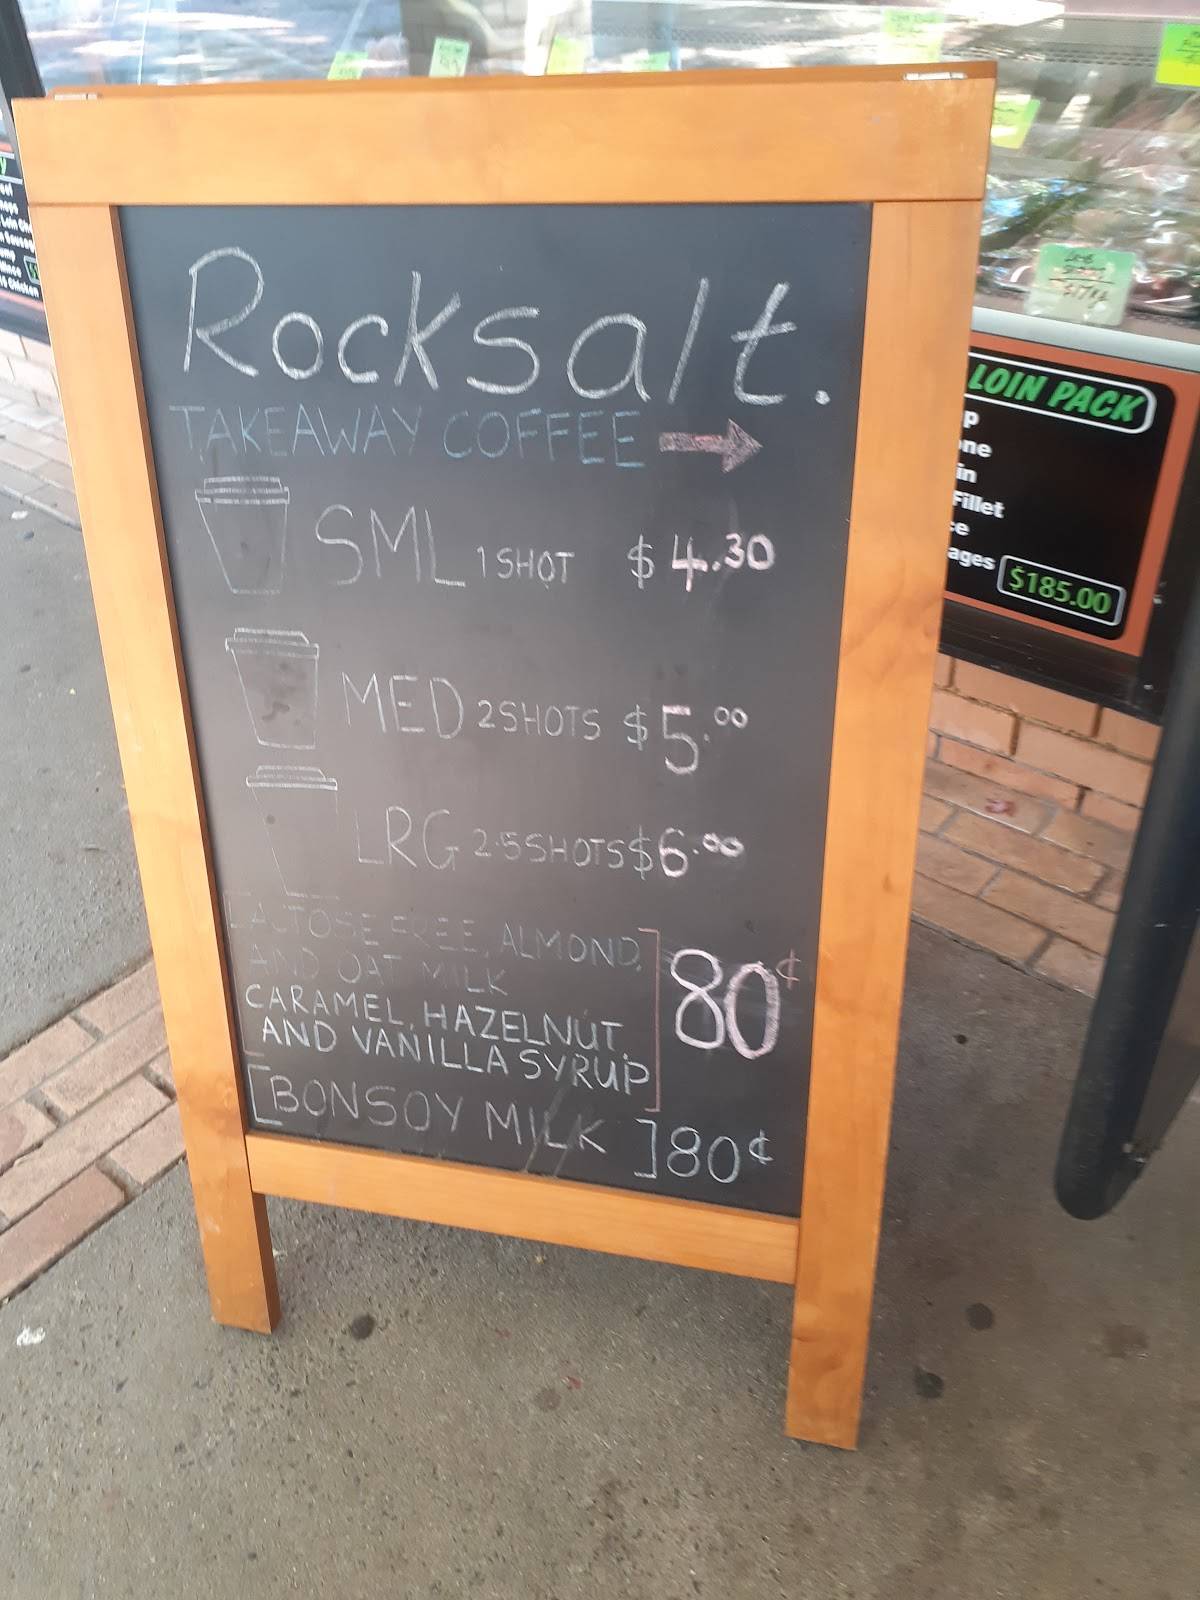 Rocksalt.
TAKEAWAY COFFEE
SML 1 SHOT $4.30
MED 2 SHOTS $5.00
LRG 2.5 SHOTS $6.00
LACTOSE FREE, ALMOND,
AND OAT MILK
CARAMEL, HAZELNUT,
AND VANILLA SYRUP
80¢
[BONSOY MILK ] 80¢
LOIN PACK
Fillet
$185.00